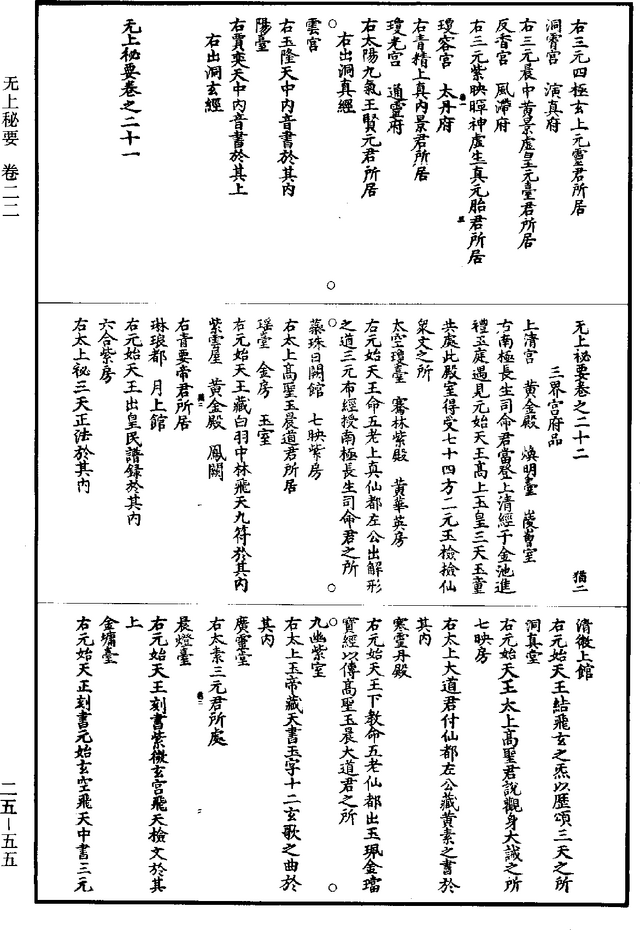 右三元四極玄上元靈君所居
洞霄宮　演真府
右三元晨中黃景虛皇元臺君所居
反香宮　風滯府
右三元紫映暉神虛生真元胎君所居
瓊容宮　太丹府
右青精上真內景君所居
瓊光宮　通靈府
右太陽九氣玉賢元君所居
右出洞真經
雲宮
右玉隆天中內音書於其內
陽臺
右賈奕天中內音書於其上
右出洞玄經
无上秘要卷之二十一
无上秘要卷之二十二　猶二
三界宮府品
上清宮　黃金殿　煥明臺　峻嶒室
右南極長生司命君當登上清經于金池進
禮玉庭遇見元始天王高上玉皇三天玉童
共處此殿室得受七十四方二元玉檢檢仙
衆文之所
太空瓊臺　騫林紫殿　黃華英房
右元始天王命五老上真仙都左公出解形
之道三元布經授南極長生司命君之所
蘂珠日闕館　七映紫房
右太上高聖玉晨道君所居
瑤臺　金房　玉室
右元始天王藏白羽中林飛天九符於其內
紫雲屋　黃金殿　鳳闕
右青要帝君所居
琳琅都　月上館
右元始天王出皇民譜錄於其內
六合紫房
右太上祕三天正法於其內
清微上館
右元始天王結飛玄之炁以歷頌三天之所
洞真堂
右元始天王太上高聖君說觀身大誡之所
七映房
右太上大道君付仙都左公藏黃素之書於
其內
寒靈丹殿
右元始天王下教命五老仙都出玉珮金璫
寶經以傳高聖玉晨大道君之所
九幽紫室
右太上玉帝藏天書玉字十二玄歌之曲於
其內
廣靈堂
右太素三元君所處
晨燈臺
右元始天王刻書紫微玄宮飛天檢文於其
上
金墉臺
右元始天王刻書元始玄空飛天中書三元
无上秘要　卷二二
二五－五五